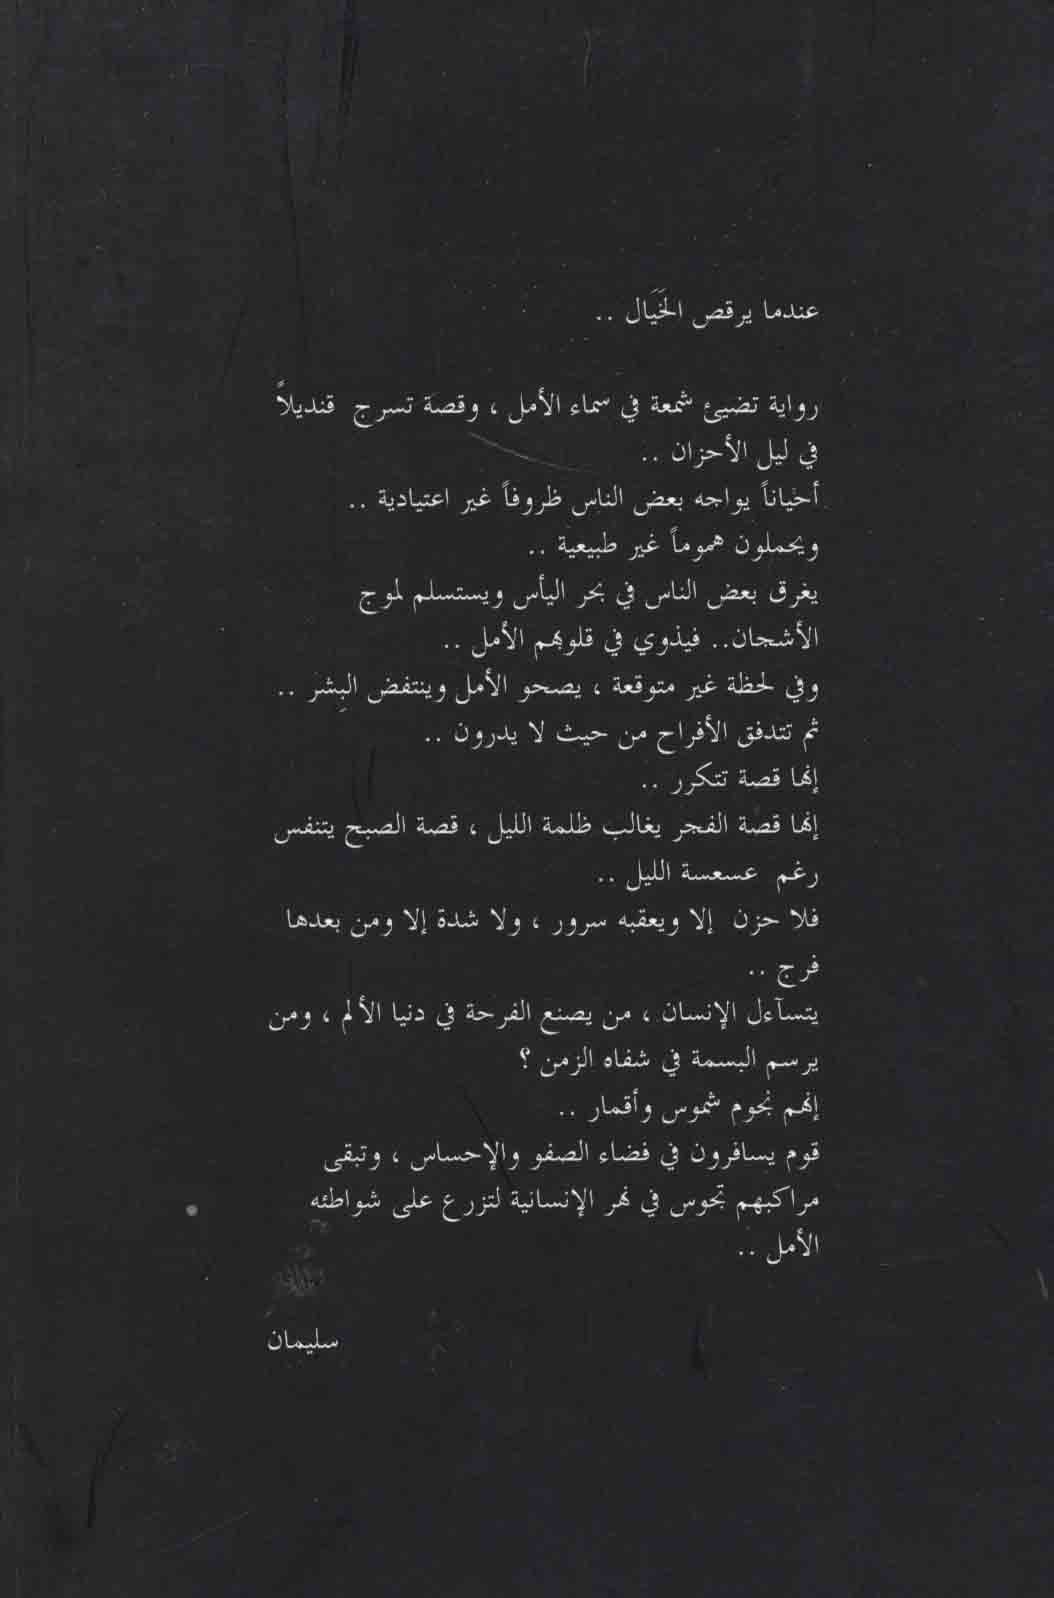 عندما يرقص الخَيَال ..
رواية تضيئ شمعة في سماء الأمل ، وقصة تسرج قنديلاً
في ليل الأحزان ..
أحياناً يواجه بعض الناس ظروفاً غير اعتيادية ..
ويحملون هموماً غير طبيعية ..
يغرق بعض الناس في بحر اليأس ويستسلم لموج
الأشجان.. فيذوي في قلوبهم الأمل ..
وفي لحظة غير متوقعة ، يصحو الأمل وينتفض البِشر ..
ثم تتدفق الأفراح من حيث لا يدرون ..
إنها قصة تتكرر ..
إنها قصة الفجر يغالب ظلمة الليل ، قصة الصبح يتنفس
رغم عسعسة الليل ..
فلا حزن إلا ويعقبه سرور ، ولا شدة إلا ومن بعدها
فرج ..
يتسآءل الإنسان ، من يصنع الفرحة في دنيا الألم ، ومن
يرسم البسمة في شفاه الزمن ؟
إنهم نجوم شموس وأقمار ..
قوم يسافرون في فضاء الصفو والإحساس ، وتبقى
مراكبهم تجوس في نهر الإنسانية لتزرع على شواطئه
الأمل ..
سليمان